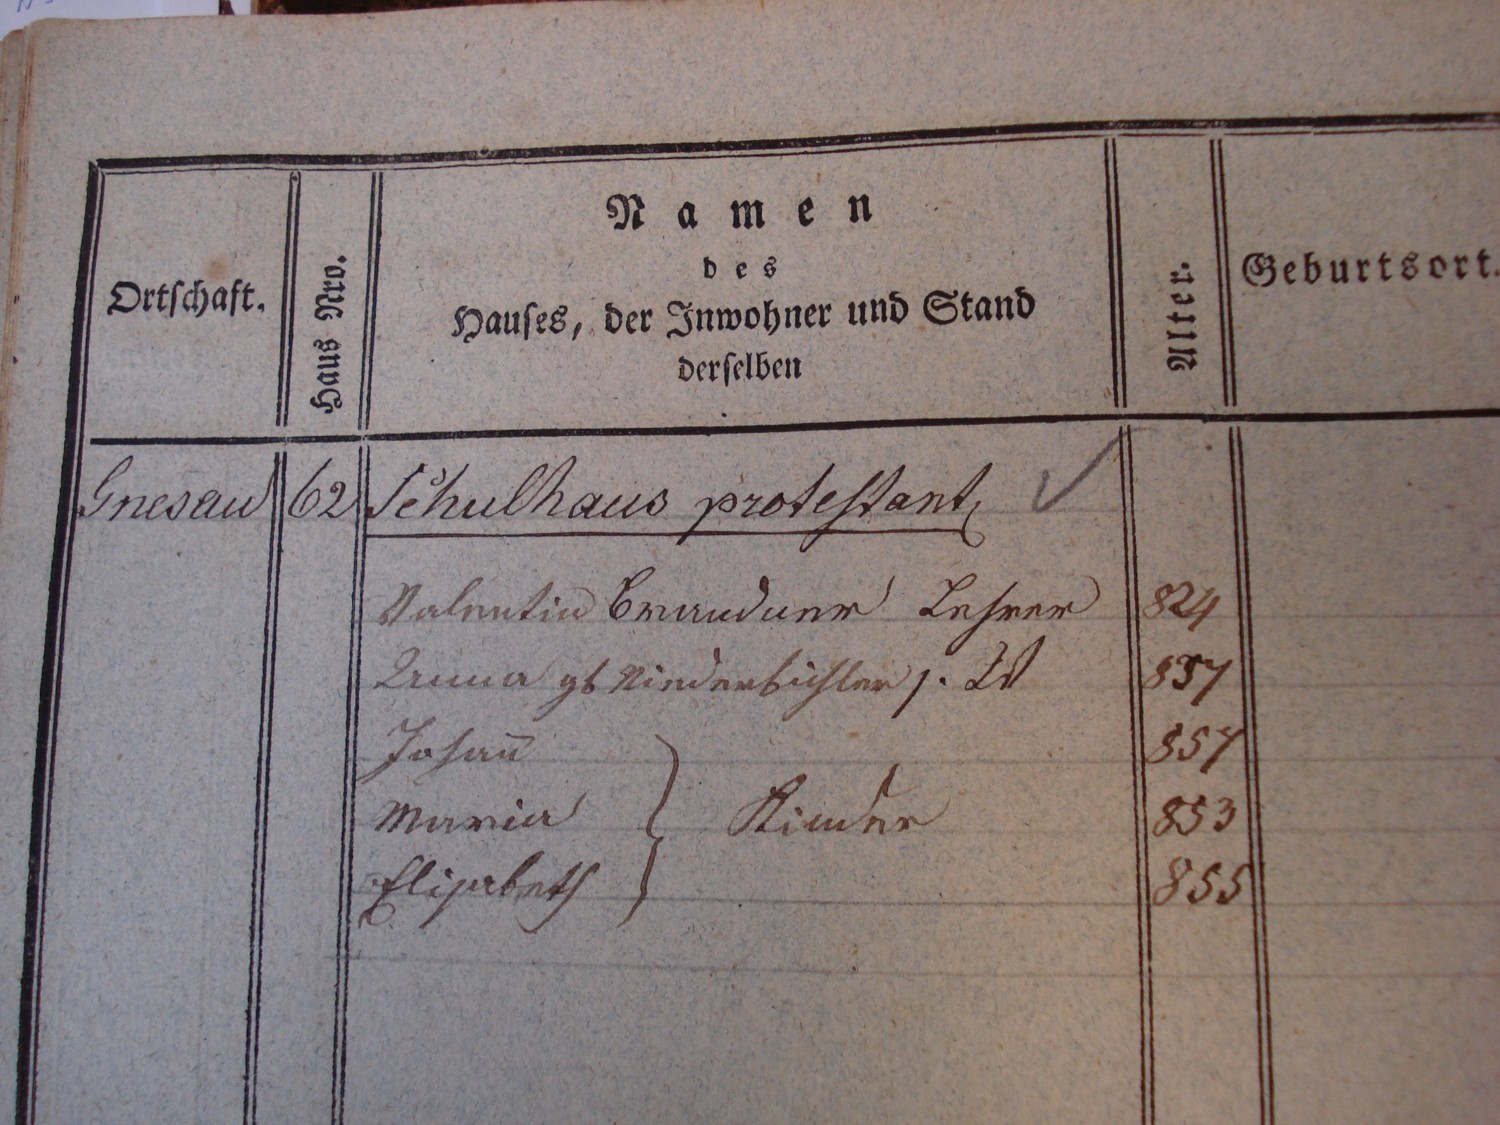 Ortschaft.
Haus Nro.
Namen
des
Hauses, der Inwohner und Stand
derselben
Alter.
Geburtsort.
Gnesau 62 Schulhaus protestant.
Valentin Brandner Lehrer 824
Anna gb Niederbichler s. W 837
Johan̅ 857
Maria 853
Kinder
Elisabeth 855